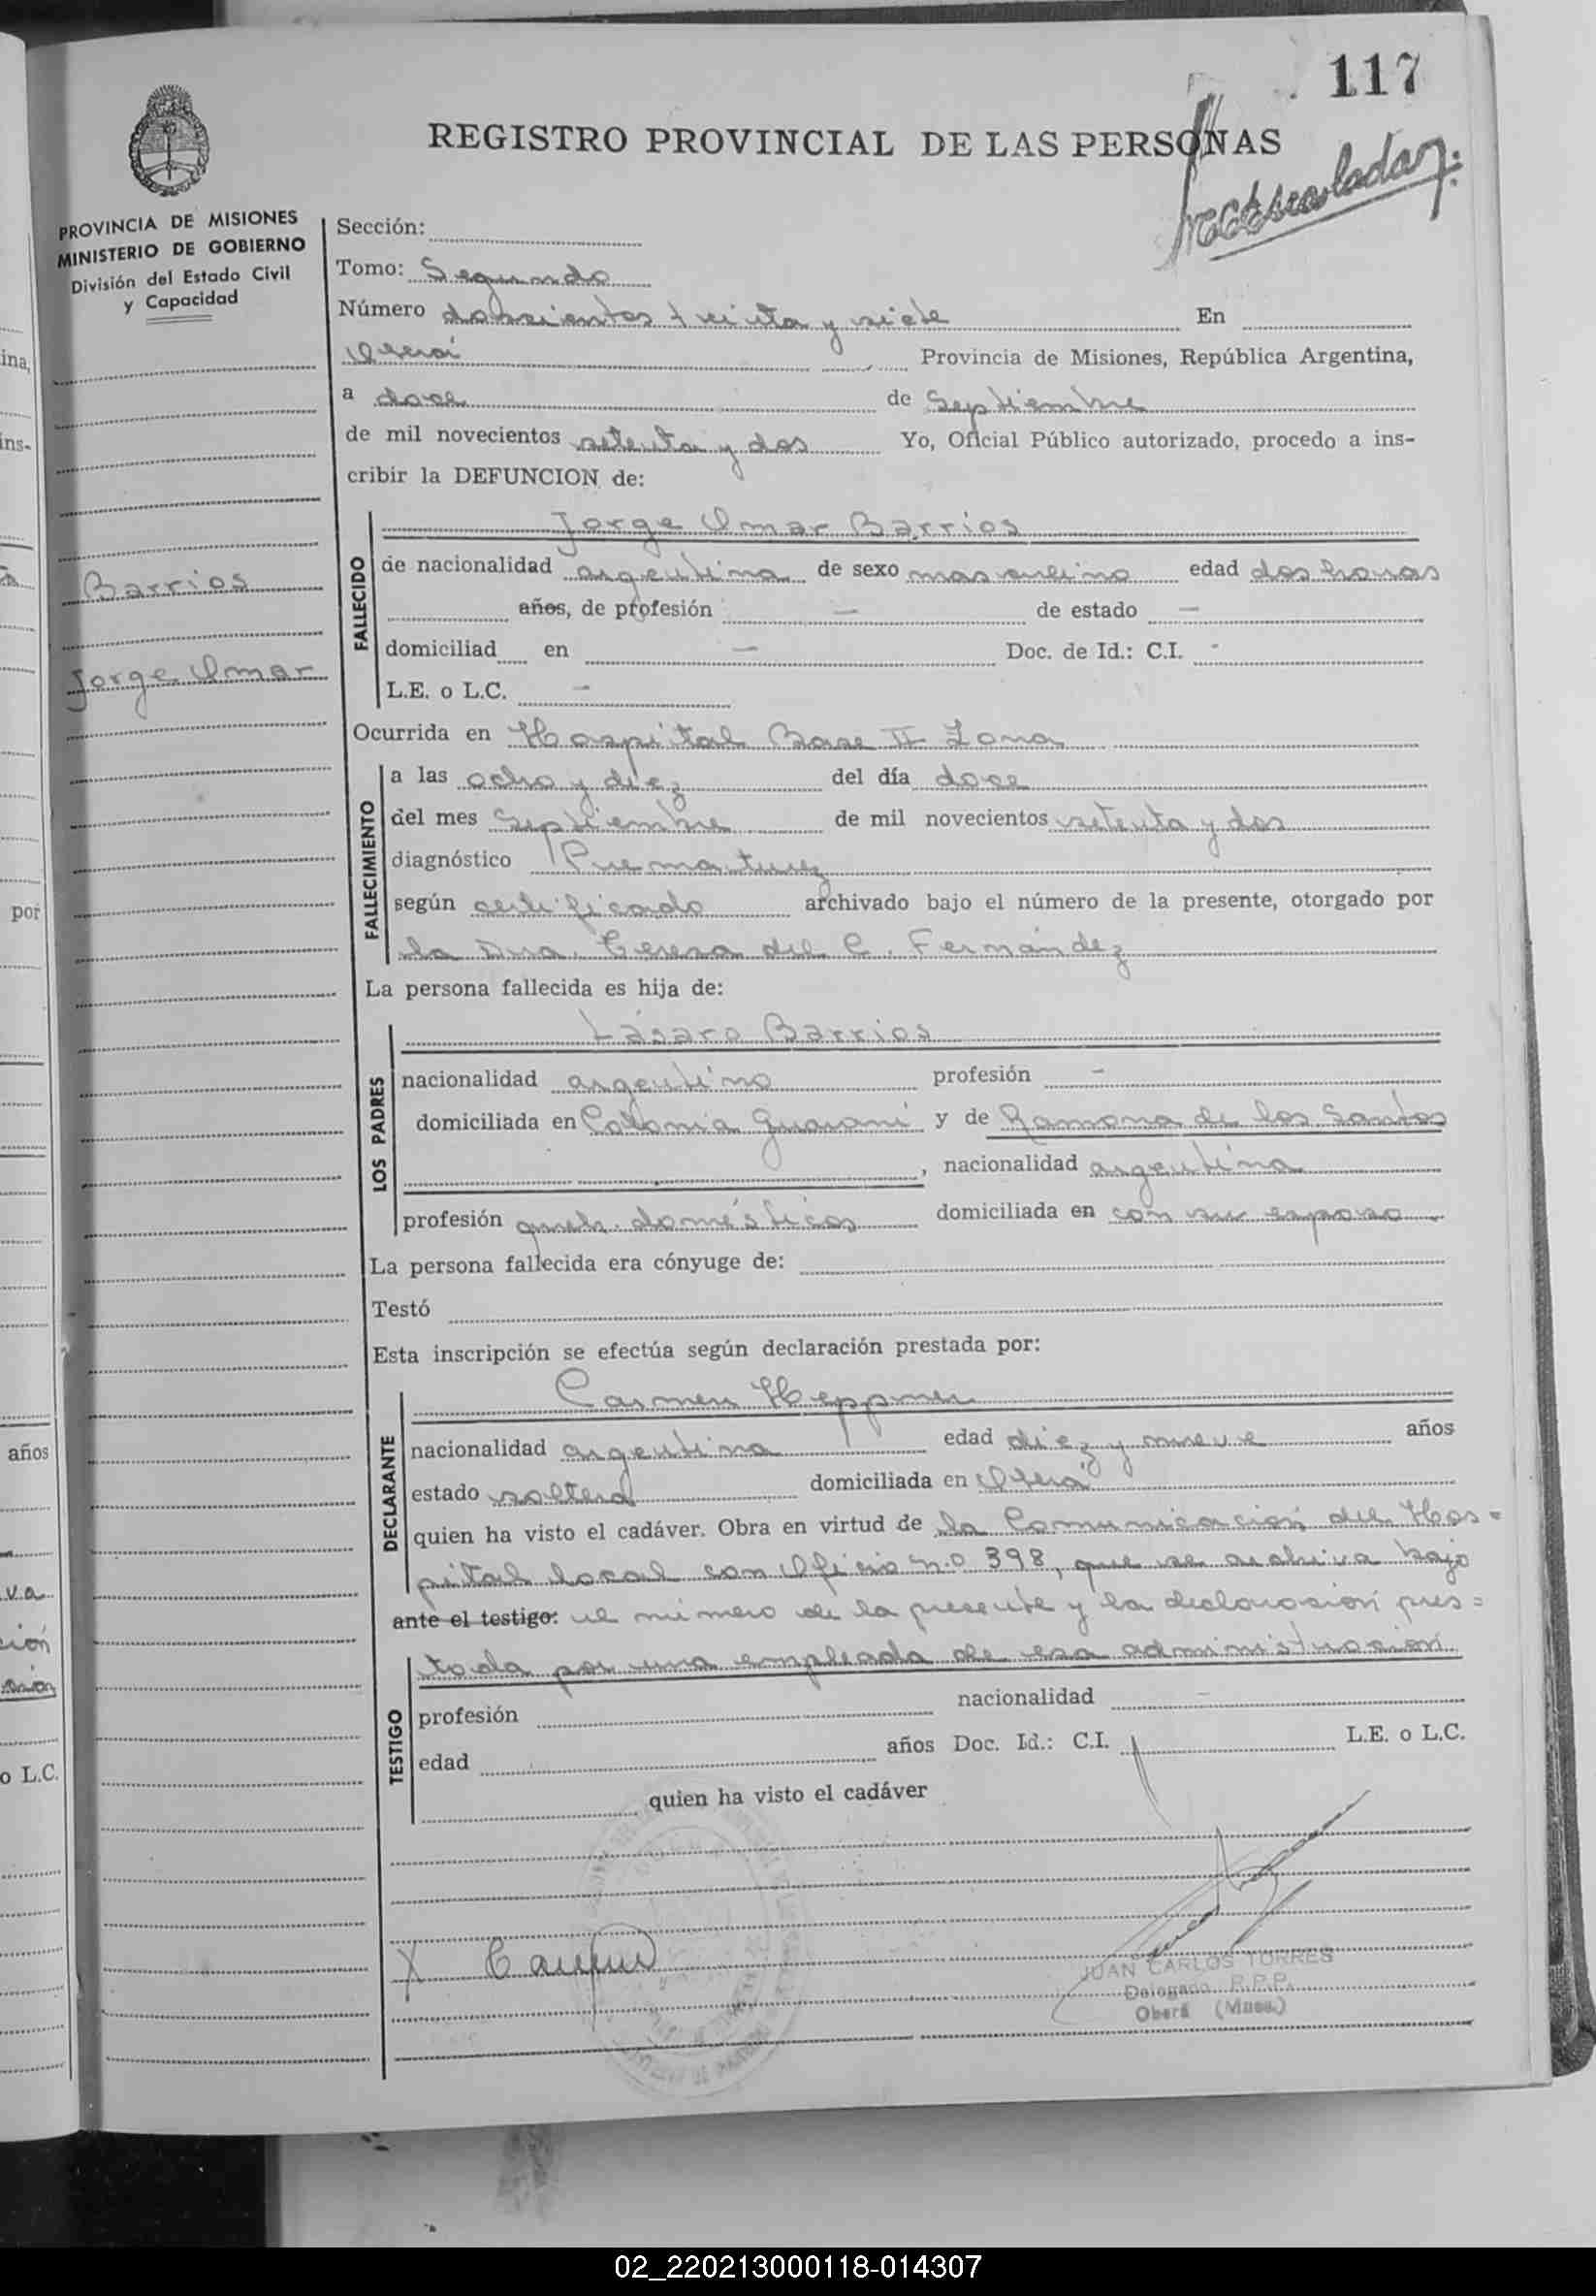 117
REGISTRO PROVINCIAL DE LAS PERSONAS
PROVINCIA DE MISIONES
MINISTERIO DE GOBIERNO
División del Estado Civil
y Capacidad
Barrios
Jorge Omar
Sección:
Tomo: Segundo
Número doscientos treinta y siete En
Oberá Provincia de Misiones, República Argentina,
a doce de Septiembre
de mil novecientos setenta y dos Yo, Oficial Público autorizado, procedo a ins-
cribir la DEFUNCION de:
FALLECIDO
Jorge Omar Barrios
de nacionalidad argentina de sexo masculino edad dos horas
años, de profesión — de estado —
domiciliad en — Doc. de Id.: C.I. -
L.E. o L.C. —
Ocurrida en Hospital Base II Zona
FALLECIMIENTO
a las ocho y diez del día doce
del mes Septiembre de mil novecientos setenta y dos
diagnóstico Prematurez
según certificado archivado bajo el número de la presente, otorgado por
la Dra. Teresa del C. Fernández
La persona fallecida es hija de:
LOS PADRES
Lásaro Barrios
nacionalidad argentino profesión -
domiciliada en Colonia Guaraní y de Ramona de los Santos
, nacionalidad argentina
profesión queh. domésticos domiciliada en con su esposo.
La persona fallecida era cónyuge de:
Testó
Esta inscripción se efectúa según declaración prestada por:
DECLARANTE
Carmen Heppner
nacionalidad argentina edad diez y nueve años
estado soltera domiciliada en Oberá
quien ha visto el cadáver. Obra en virtud de la Comunicación del Hos=
pital local con Oficio n.o 398, que se archiva bajo
ante el testigo: el número de la presente y la declaración pres=
tada por una empleada de esa administración
TESTIGO
profesión nacionalidad -
edad años Doc. Id.: C.I. L.E. o L.C.
quien ha visto el cadáver
X
JUAN CARLOS TORRES
Delegado R.P.P.
Oberá (Mnes.)
ina,
ins-
por
años
va
ción
o L.C.
02_220213000118-014307